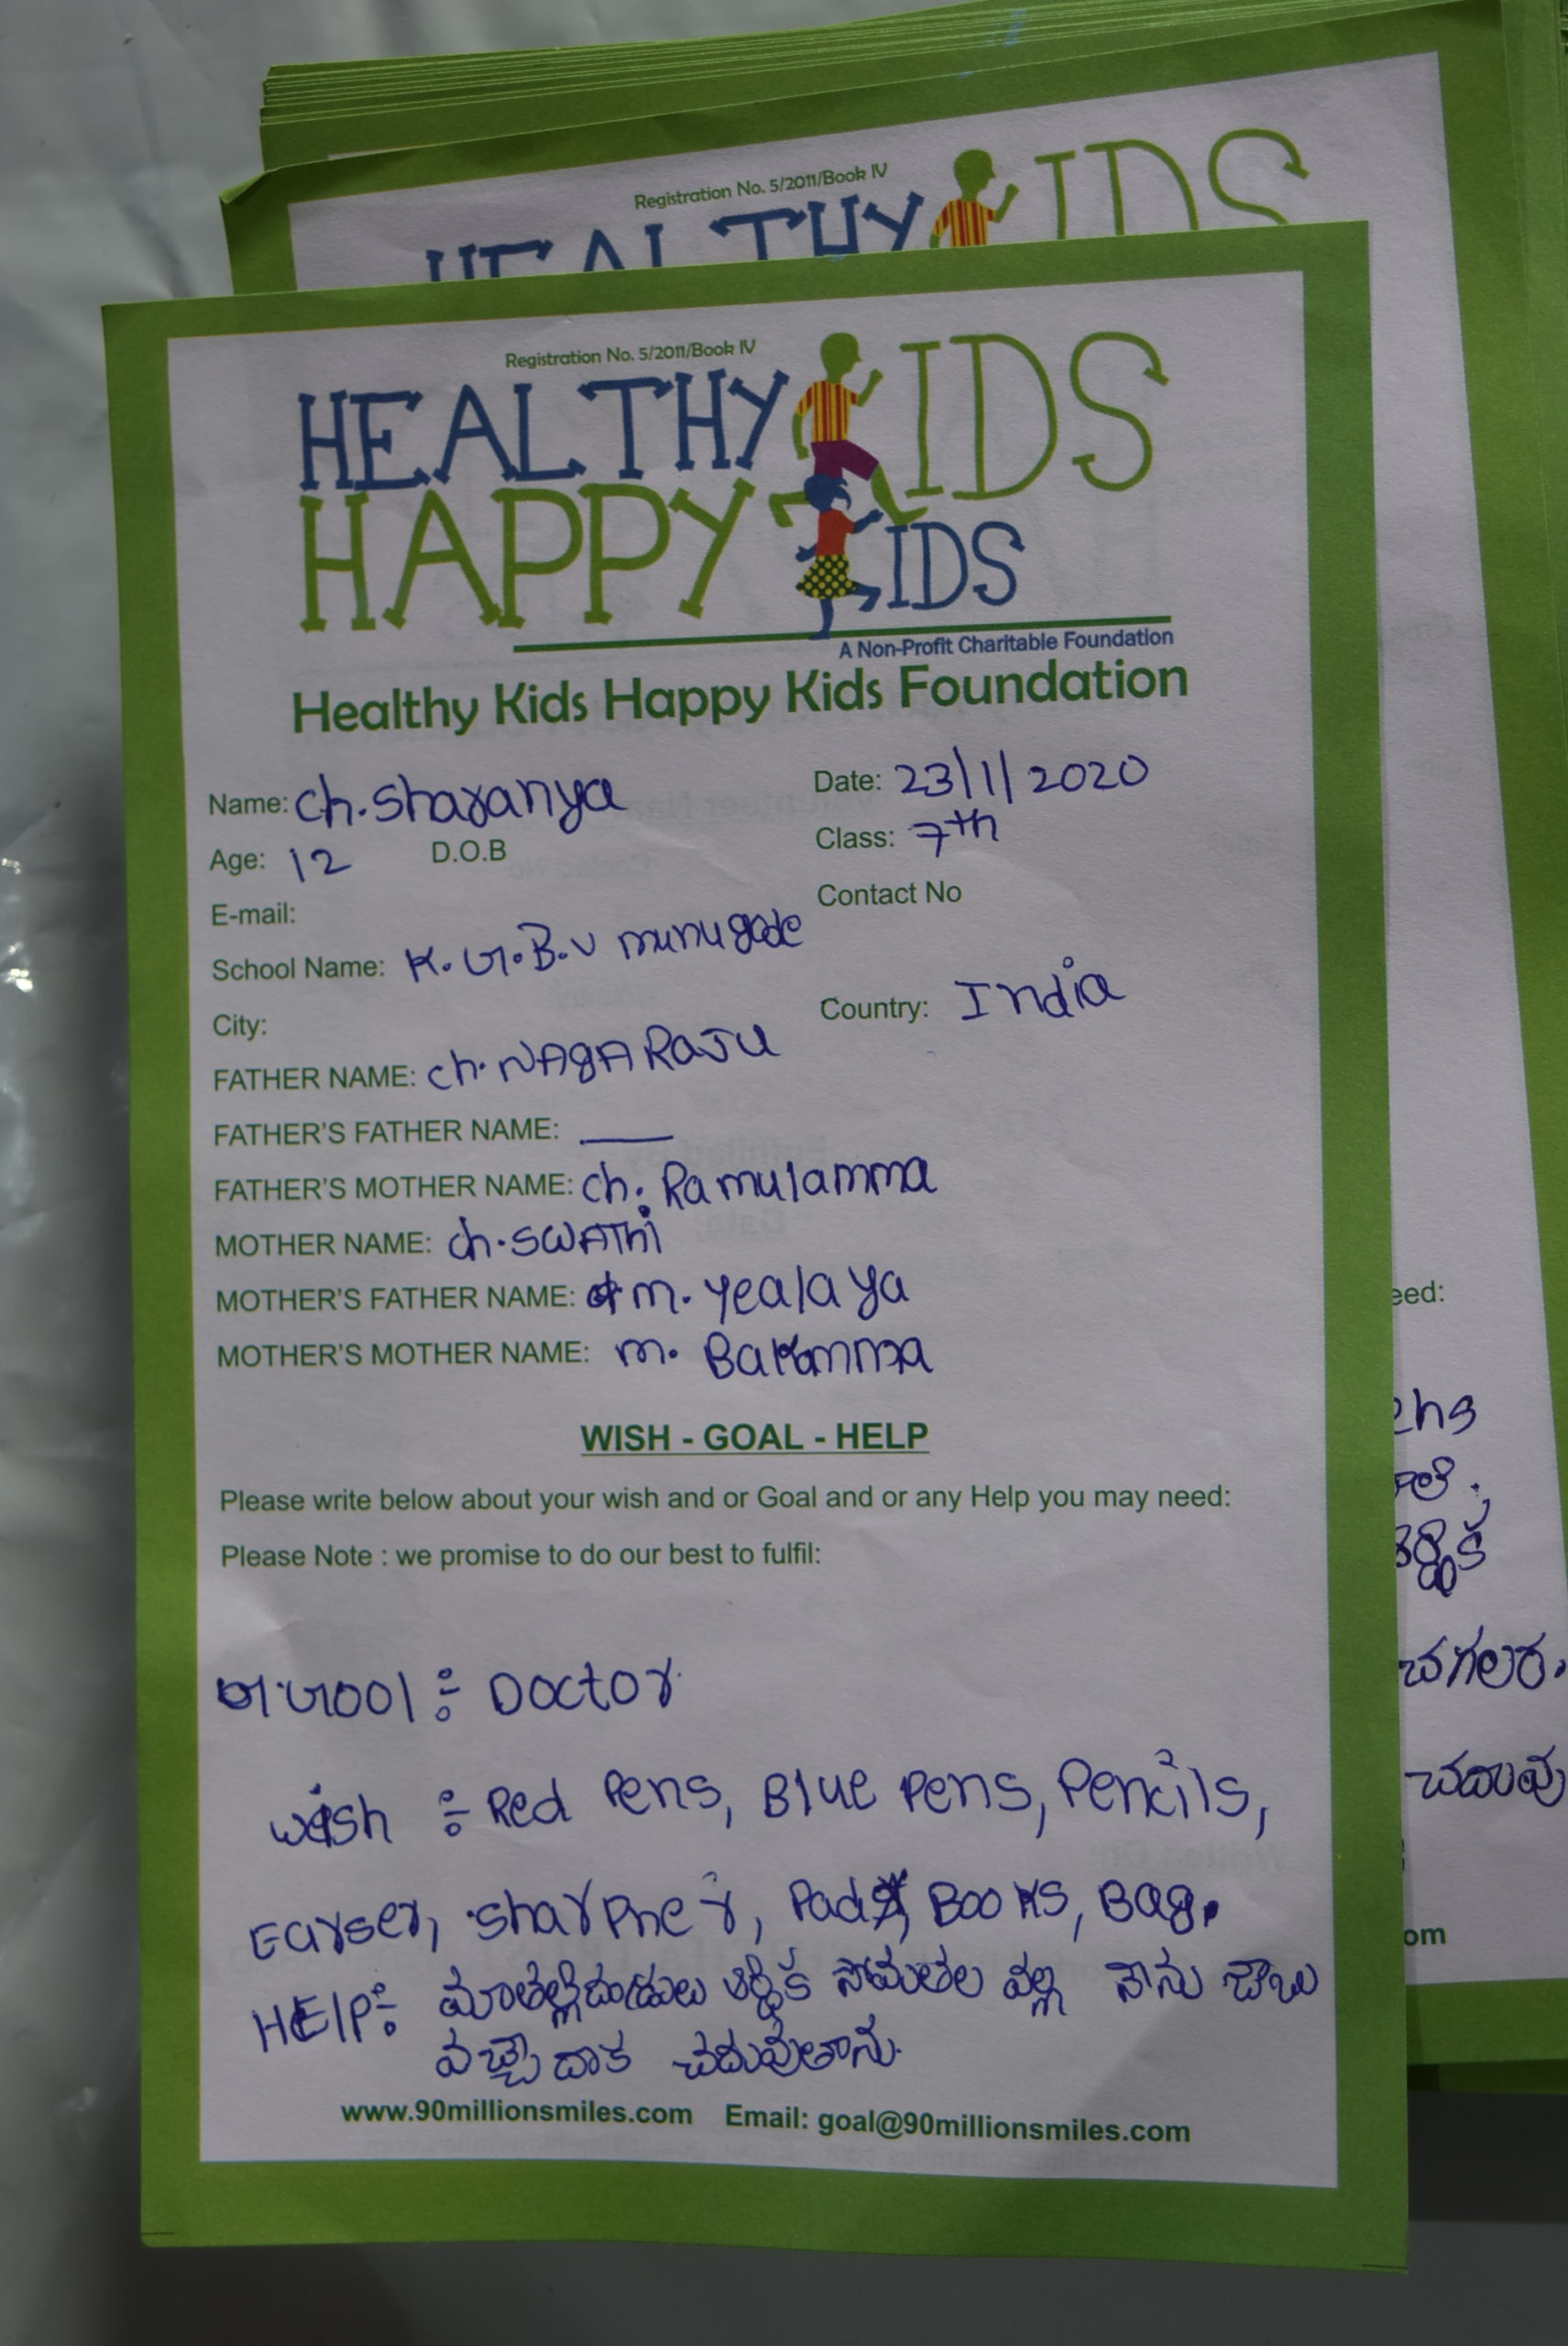 Registration No. 5/2011/Book IV
HEALTHY KIDS
Registration No. 5/2011/Book IV
HEALTHY KIDS
HAPPY KIDS
A Non-Profit Charitable Foundation
Healthy Kids Happy Kids Foundation
Name: Ch. Sharanya Date: 23/1/2020
Age: 12 D.O.B Class: 7th
E-mail: Contact No
School Name: K.G.B.V munugode
City: Country: India
FATHER NAME: Ch. NAgARaJu
FATHER'S FATHER NAME: —
FATHER'S MOTHER NAME: Ch. Ramulamma
MOTHER NAME: Ch. SWAThi
MOTHER'S FATHER NAME: m. yealaya
MOTHER'S MOTHER NAME: m.
WISH - GOAL - HELP
Please write below about your wish and or Goal and or any Help you may need:
Please Note : we promise to do our best to fulfil:
Gool : Doctor
wish : Red Pens, Blue Pens, Pencils,
Earser, sharpner, Pad, Books, Bag.
HELP: మాతల్లిదండ్రులు ఆర్థిక సోమతల వల్ల నాను జాబు
వచ్చె దాక చదువుతాను.
www.90millionsmiles.com Email: goal@90millionsmiles.com
eed:
చగలరు.
చదువు
om